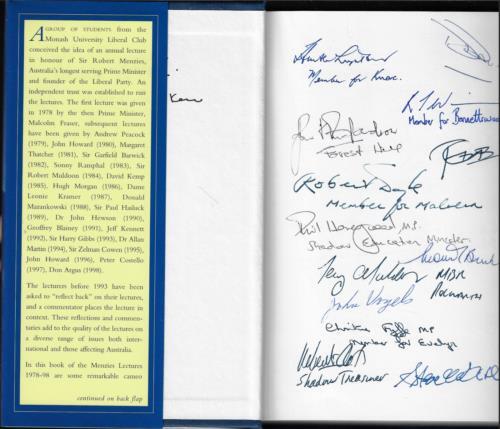 A GROUP OF STUDENTS from the
Monash University Liberal Club
conceived the idea of an annual lecture
in honour of Sir Robert Menzies,
Australia's longest serving Prime Minister
and founder of the Liberal Party. An
independent trust was established to run
the lectures. The first lecture was given
in 1978 by the then Prime Minister,
Malcolm Fraser, subsequent lectures
have been given by Andrew Peacock
(1979), John Howard (1980), Margaret
Thatcher (1981), Sir Garfield Barwick
(1982), Sonny Ramphal (1983), Sir
Robert Muldoon (1984), David Kemp
(1985), Hugh Morgan (1986), Dame
Leonie Kramer (1987), Donald
Markwell (1988), Sir Paul Hasluck
(1989), Dr John Hewson (1990),
Geoffrey Blainey (1991), Jeff Kennett
(1992), Sir Harry Gibbs (1993), Dr Allan
Martin (1994), Sir Zelman Cowen (1995),
John Howard (1996), Peter Costello
(1997), Don Argus (1998).
The lecturers before 1993 have been
asked to "reflect back" on their lectures,
and a commentator places the lecture in
context. These reflections and commen-
taries add to the quality of the lectures on
a diverse range of issues both inter-
national and those affecting Australia.
In this book of the Menzies Lectures
1978-98 are some remarkable cameo
continued on back flap
Member for Knox.
Member for Bennettswood
Forest Hill
Robert Doyle
Member for Malvern
Phil Honeywood MP.
Shadow Education Minister
Terry Mulder
John Vogels
Christine Fyffe MP
Member for Evelyn
Robert Clark
Shadow Treasurer